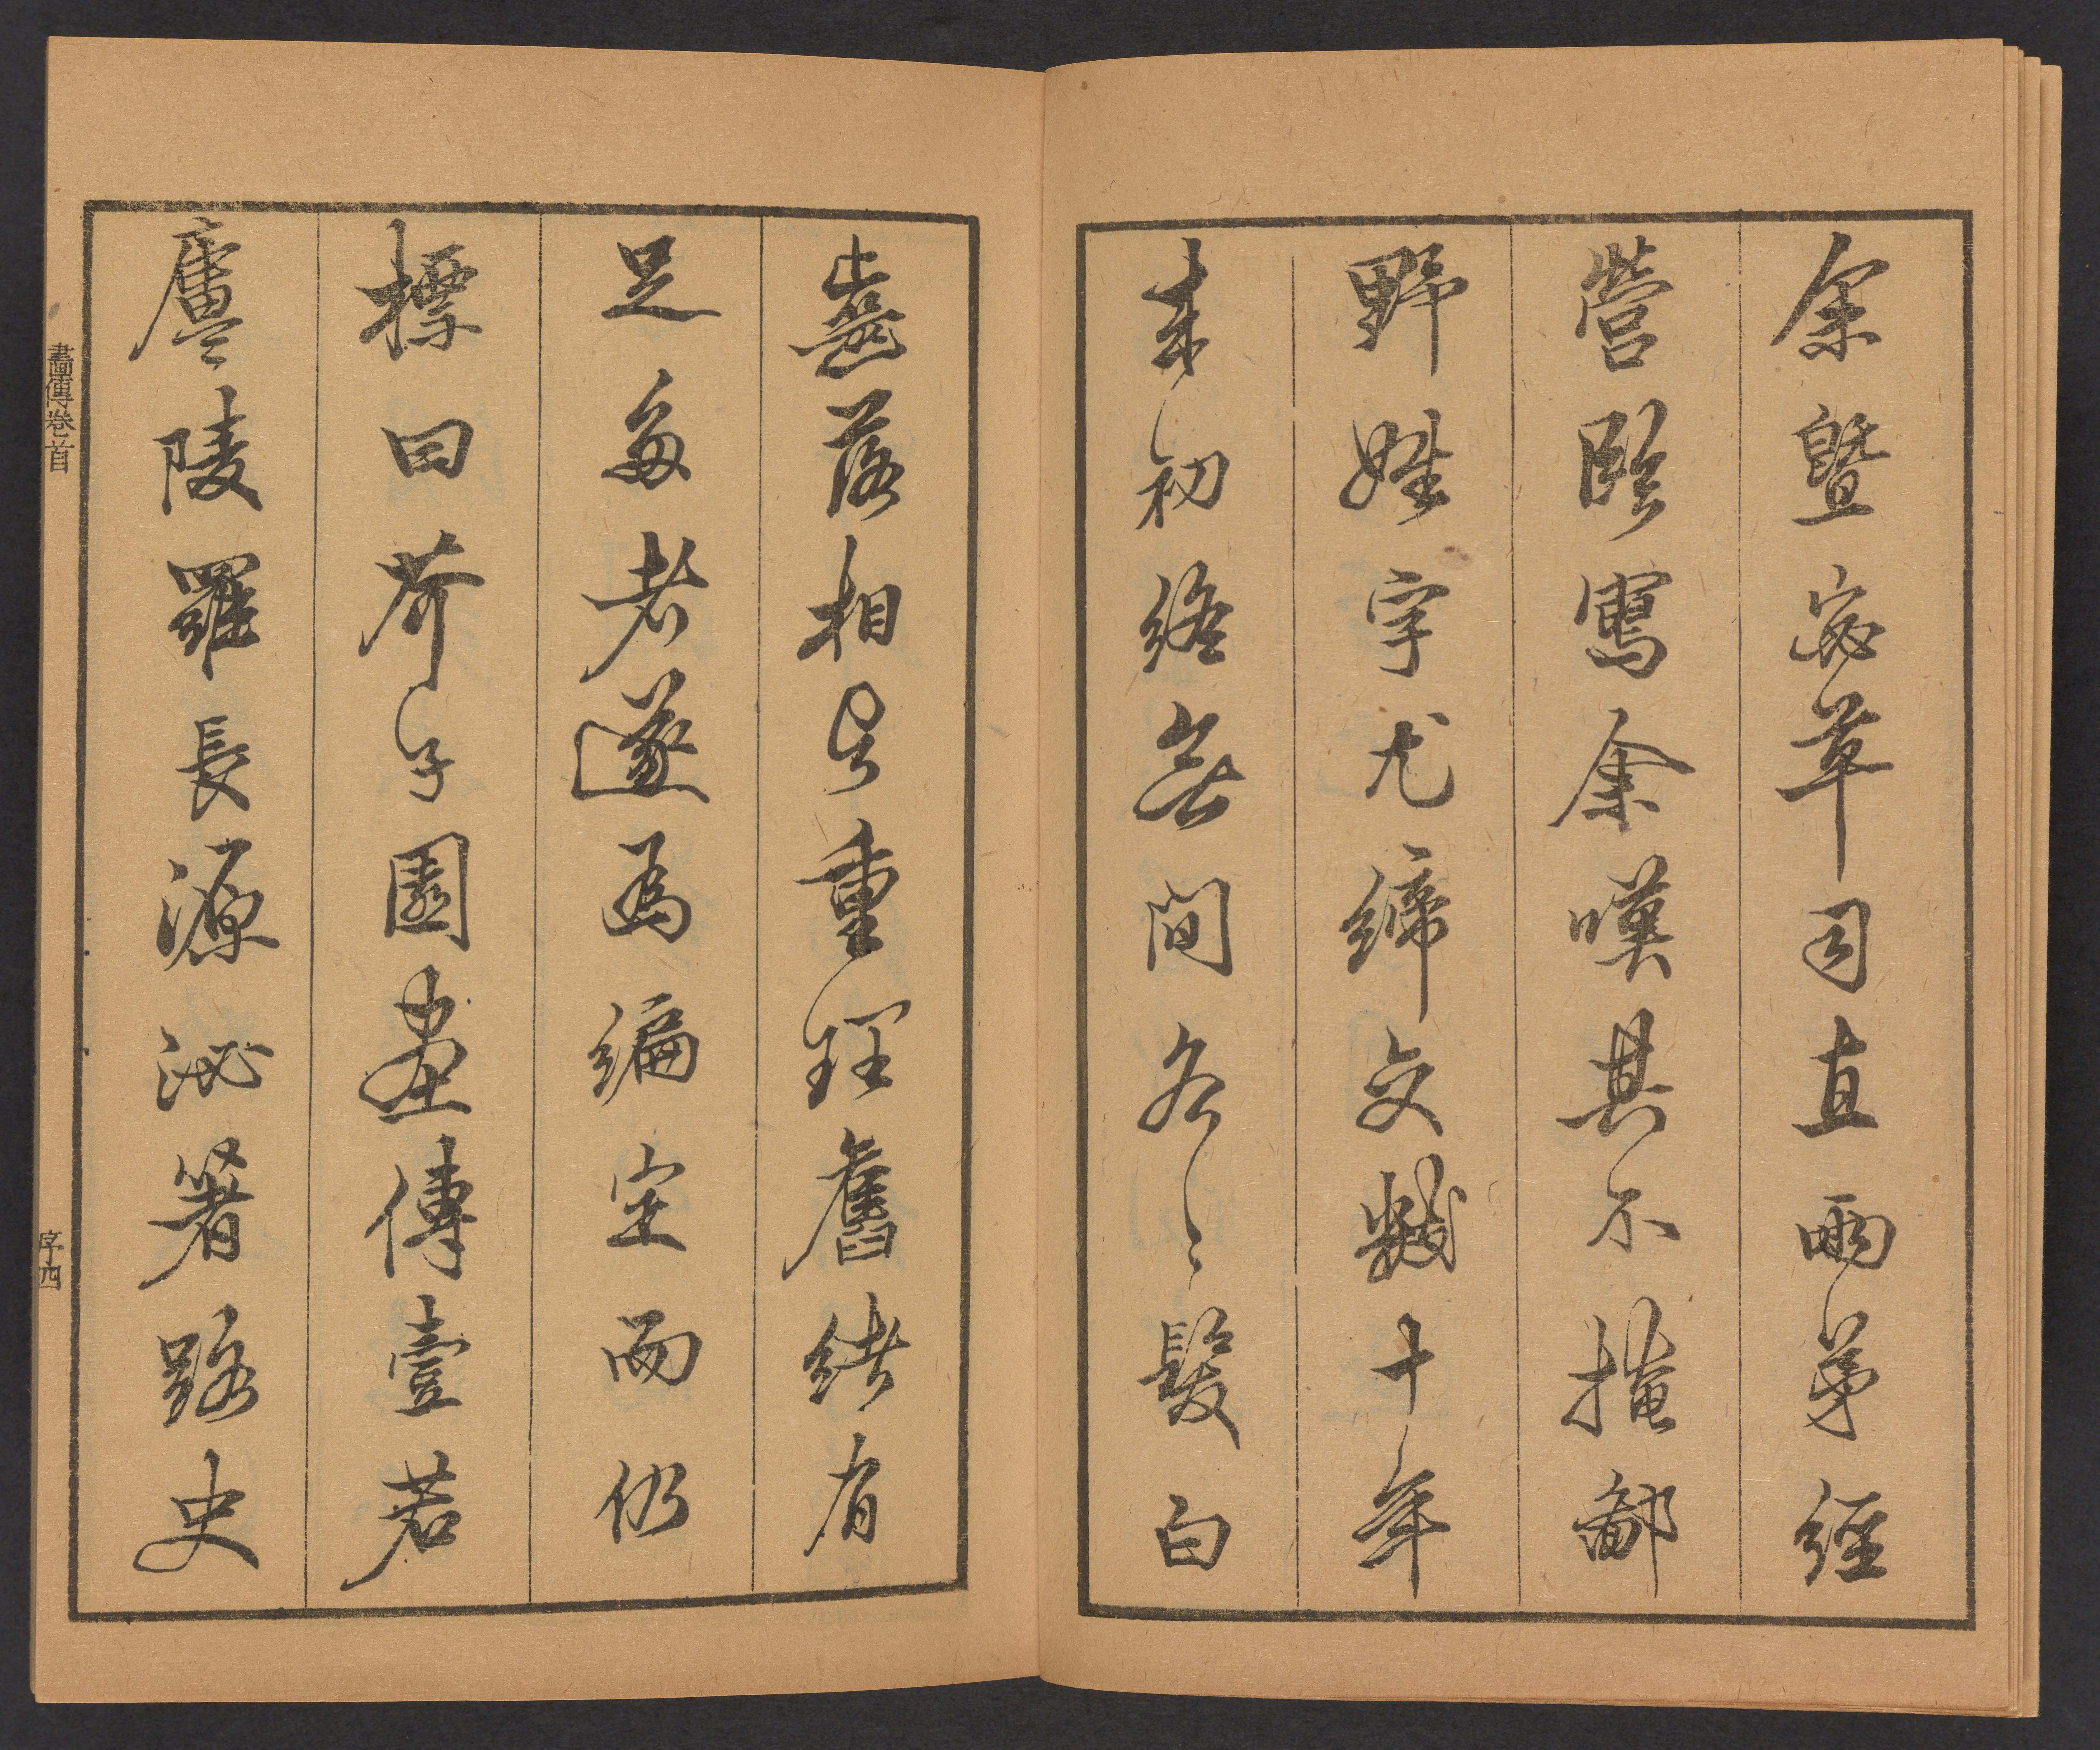 余暨宓草司直兩弟經
營臨寫余嘆其不掩鄙
野姓字尤締交數十年
來初終無間各〻髮白
齒落相與重理舊緒有
足多者遂為編定而仍
標曰芥子園畫傳壹若
廬陵羅長源泌箸路史
畫傳卷首
序四